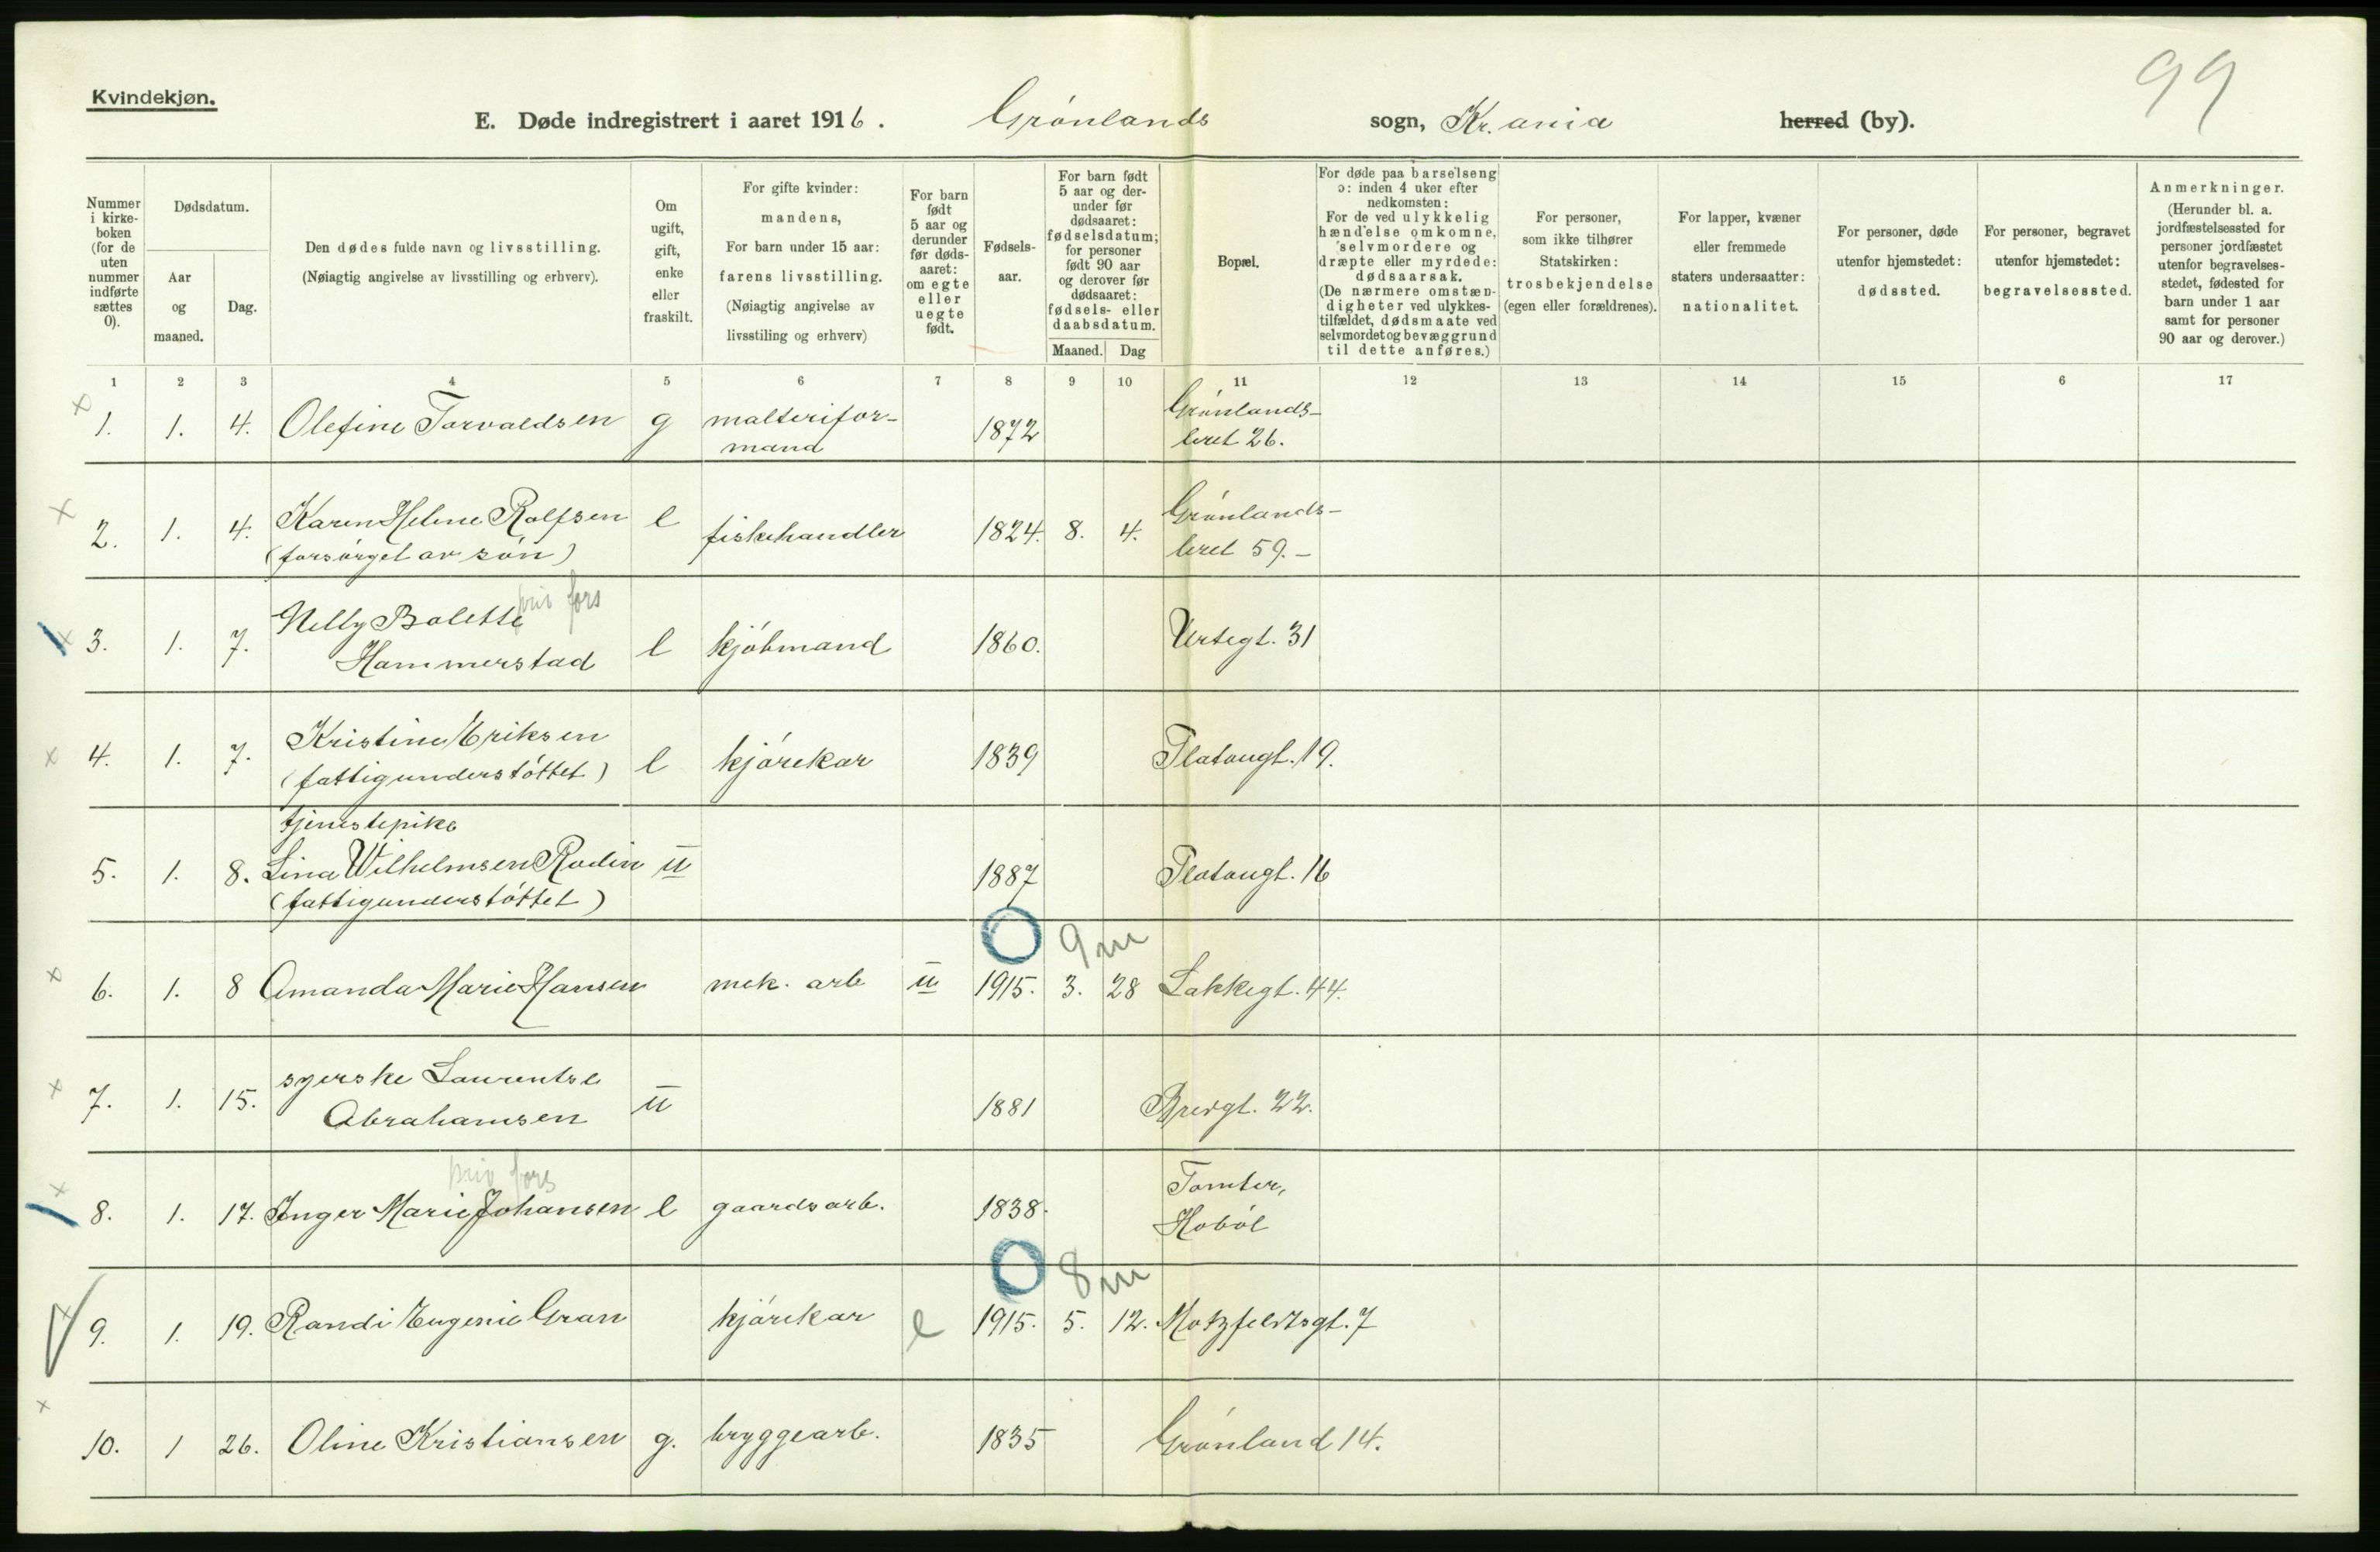 99
Kvindekjøn.
E. Døde indregistrert i aaret 1916. Grønlands sogn, Kr.ania herred (by).
Nummer i kirke-boken (for de uten nummer indførte sættes 0).
Dødsdatum.
Aar og maaned.
Dag.
Den dødes fulde navn og livsstilling.
(Nøiagtig angivelse av livsstilling og erhverv).
Om ugift, gift, enke eller fraskilt.
For gifte kvinder:
mandens,
For barn under 15 aar:
farens livsstilling.
(Nøiagtig angivelse av
livsstiling og erhverv)
For barn født 5 aar og derunder før døds-aaret: om egte eller uegte født.
Fødsels-aar.
For barn født 5 aar og der-under før dødsaaret: fødselsdatum; for personer født 90 aar og derover før dødsaaret: fødsels- eller daabsdatum.
Maaned. Dag
Bopæl.
For døde paa barselseng
ɔ: inden 4 uker efter
nedkomsten:
For de ved ulykkelig
hændelse omkomne,
selvmordere og
dræpte eller myrdede:
dødsaarsak.
(De nærmere omstæn-
digheter ved ulykkes-
tilfældet, dødsmaate ved
selvmordet og bevæggrund
til dette anføres.)
For personer,
som ikke tilhører
Statskirken:
trosbekjendelse
(egen eller forældrenes).
For lapper, kvæner
eller fremmede
staters undersaatter:
nationalitet.
For personer, døde
utenfor hjemstedet:
dødssted.
For personer, begravet
utenfor hjemstedet:
begravelsessted.
Anmerkninger.
(Herunder bl. a.
jordfæstelsessted for
personer jordfæstet
utenfor begravelses-
stedet, fødested for
barn under 1 aar
samt for personer
90 aar og derover.)
1 2 3 4 5 6 7 8 9 10 11 12 13 14 15 6 17
x 1. 1. 4. Olefine Torvaldsen g malterifor-
mand 1872 Grønlands-
leret 26.
x 2. 1. 4. Karen Helene Rolfsen
(forsørget av søn) e fiskehandler 1824. 8. 4. Grønlands-
leret 59.-
priv fors
x 3. 1. 7. Nelly Bolette
Hammerstad e kjøbmand 1860. Urtegt. 31
x 4. 1. 7. Kristine Eriksen
(fattigunderstøttet) e kjørekar 1839 Platougt. 19.
tjenestepike
5. 1. 8. Lina Wilhelmsen Rodin u 1887 Platougt. 16
(fattigunderstøttet)
9 m
x 6. 1. 8 Amanda Marie Hansen mek. arb u 1915. 3. 28 Lakkegt. 44.
x 7. 1. 15. syerske Laurentse
Abrahamsen u 1881 Bredgt. 22.
priv fors
x 8. 1. 17. Inger Marie Johansen e gaardsarb. 1838. Tomter,
Hobøl
8 m
x 9. 1. 19. Randi Eugenie Gran kjørekar e 1915. 5. 12. Motzfeldtsgt. 7
x 10. 1 26. Oline Kristiansen g. bryggearb. 1835 Grønland 14.